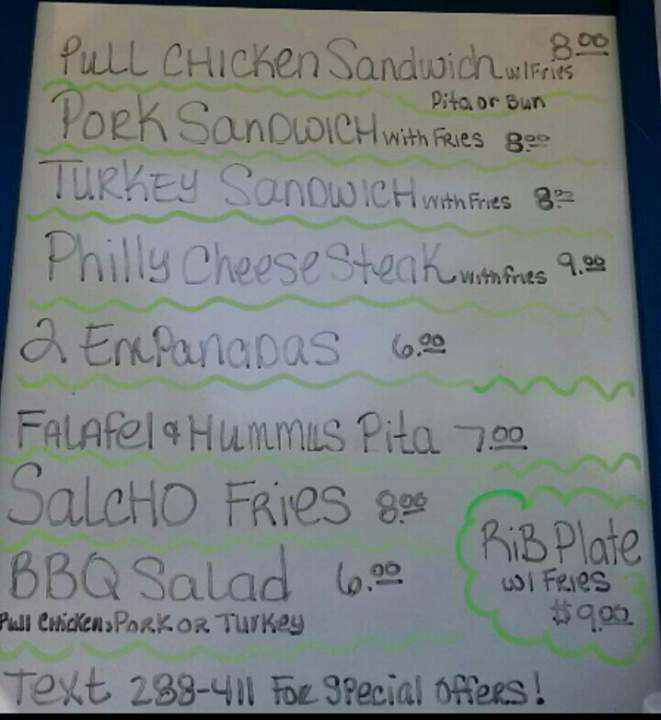 PULL CHICKen Sandwich w/Fries 8.00
Pita or Bun
PORK SanDWICH with FRies 8.00
TURKEY SanDWICH with Fries 8.00
Philly Cheese Steak with fries 9.00
2 EmPanaDas 6.00
FALAfel & Hummus Pita 7.00
SalcHO FRies 8.00
BBQ Salad 6.00
Pull Chicken, PORK OR TurKey
RiB Plate
w/ FRies
$9.00
Text 288-411 FoR Special Offers!